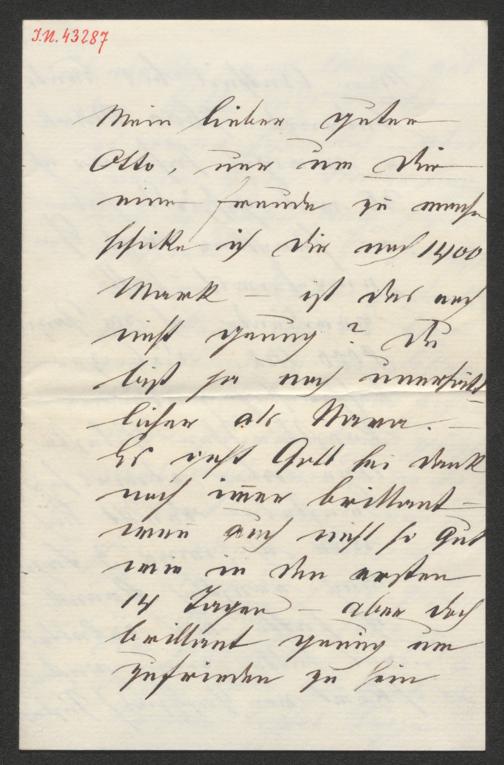 I.N. 43287
Mein lieber guter
Otto, nur um Dir
eine Freude zu machen
schicke ich Dir noch 1400
Mark – ist das noch
nicht genug? Du
bist ja noch unersätt
licher als Mama. –
Es geht Gott sei Dank
noch immer brillant –
wenn auch nicht so gut
wie in den ersten
14 Tagen – aber doch
brillant genug um
zufrieden zu sein